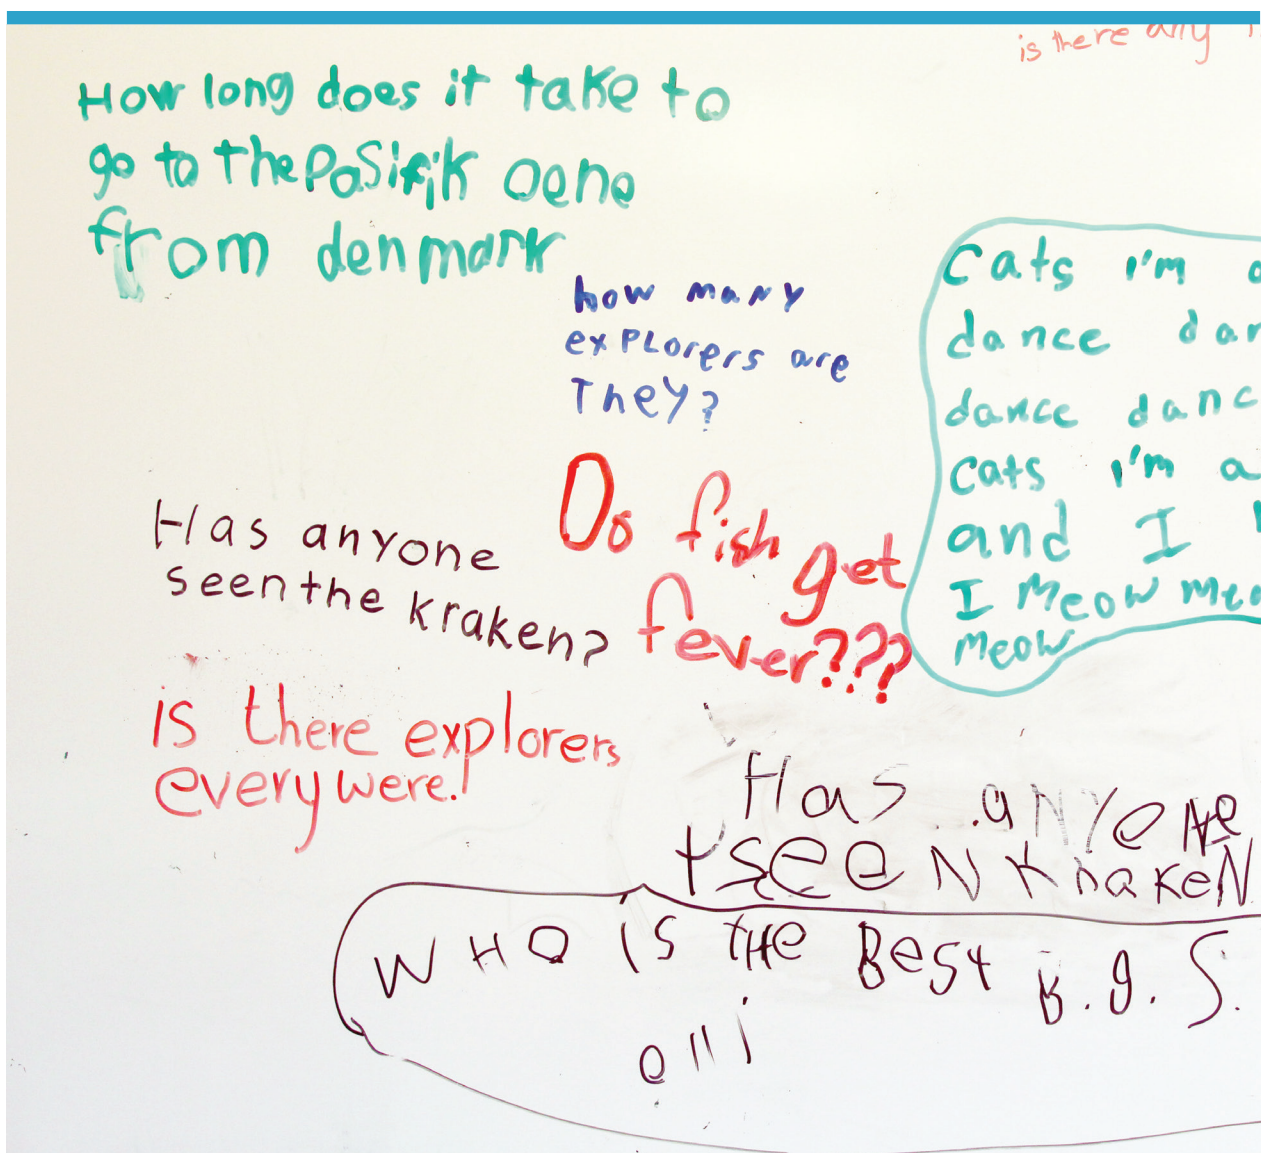 is there any
How long does it take to
go to the Posifik oene
from denmark
how many
explorers are
They?
Cats I'm
dance
dance danc
Cats I'm a
and I
I Meow
meow
Do fish get
fever???
Has anyone
seen the kraken?
is there explorers
everywere!
Has anyene
seeN KrakeN
WHO is tHe Best B.g.S.
olli